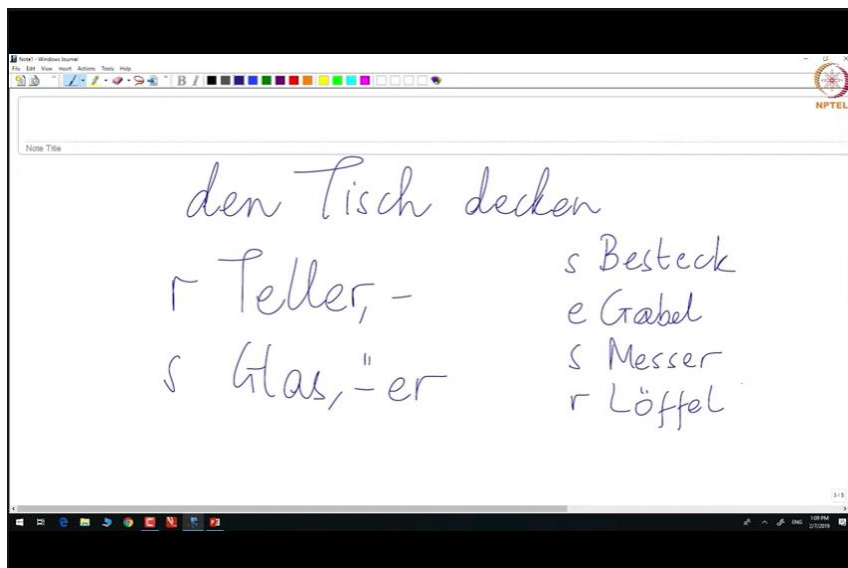 Note1 - Windows Journal
File Edit View Insert Actions Tools Help
B I
NPTEL
Note Title
den Tisch decken
r Teller, -
s Glas, ⸚er
s Besteck
e Gabel
s Messer
r Löffel
3/5
ENG
1:09 PM
2/7/2019